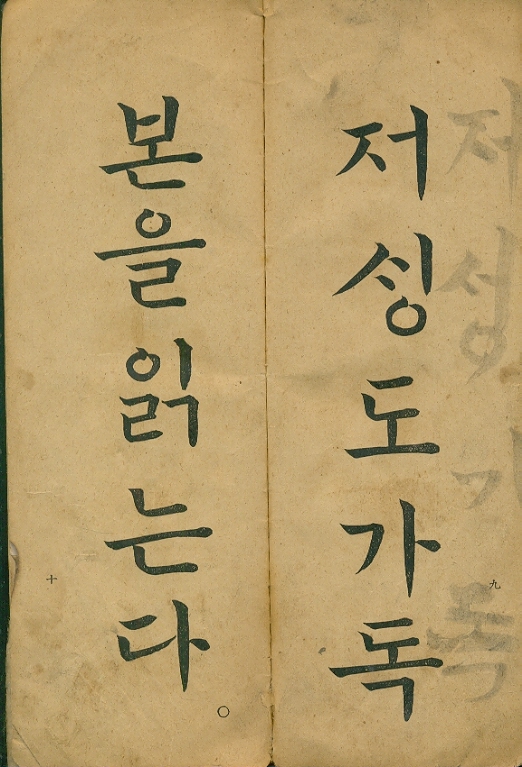 저생도가독
九
본을읽는다
○
十